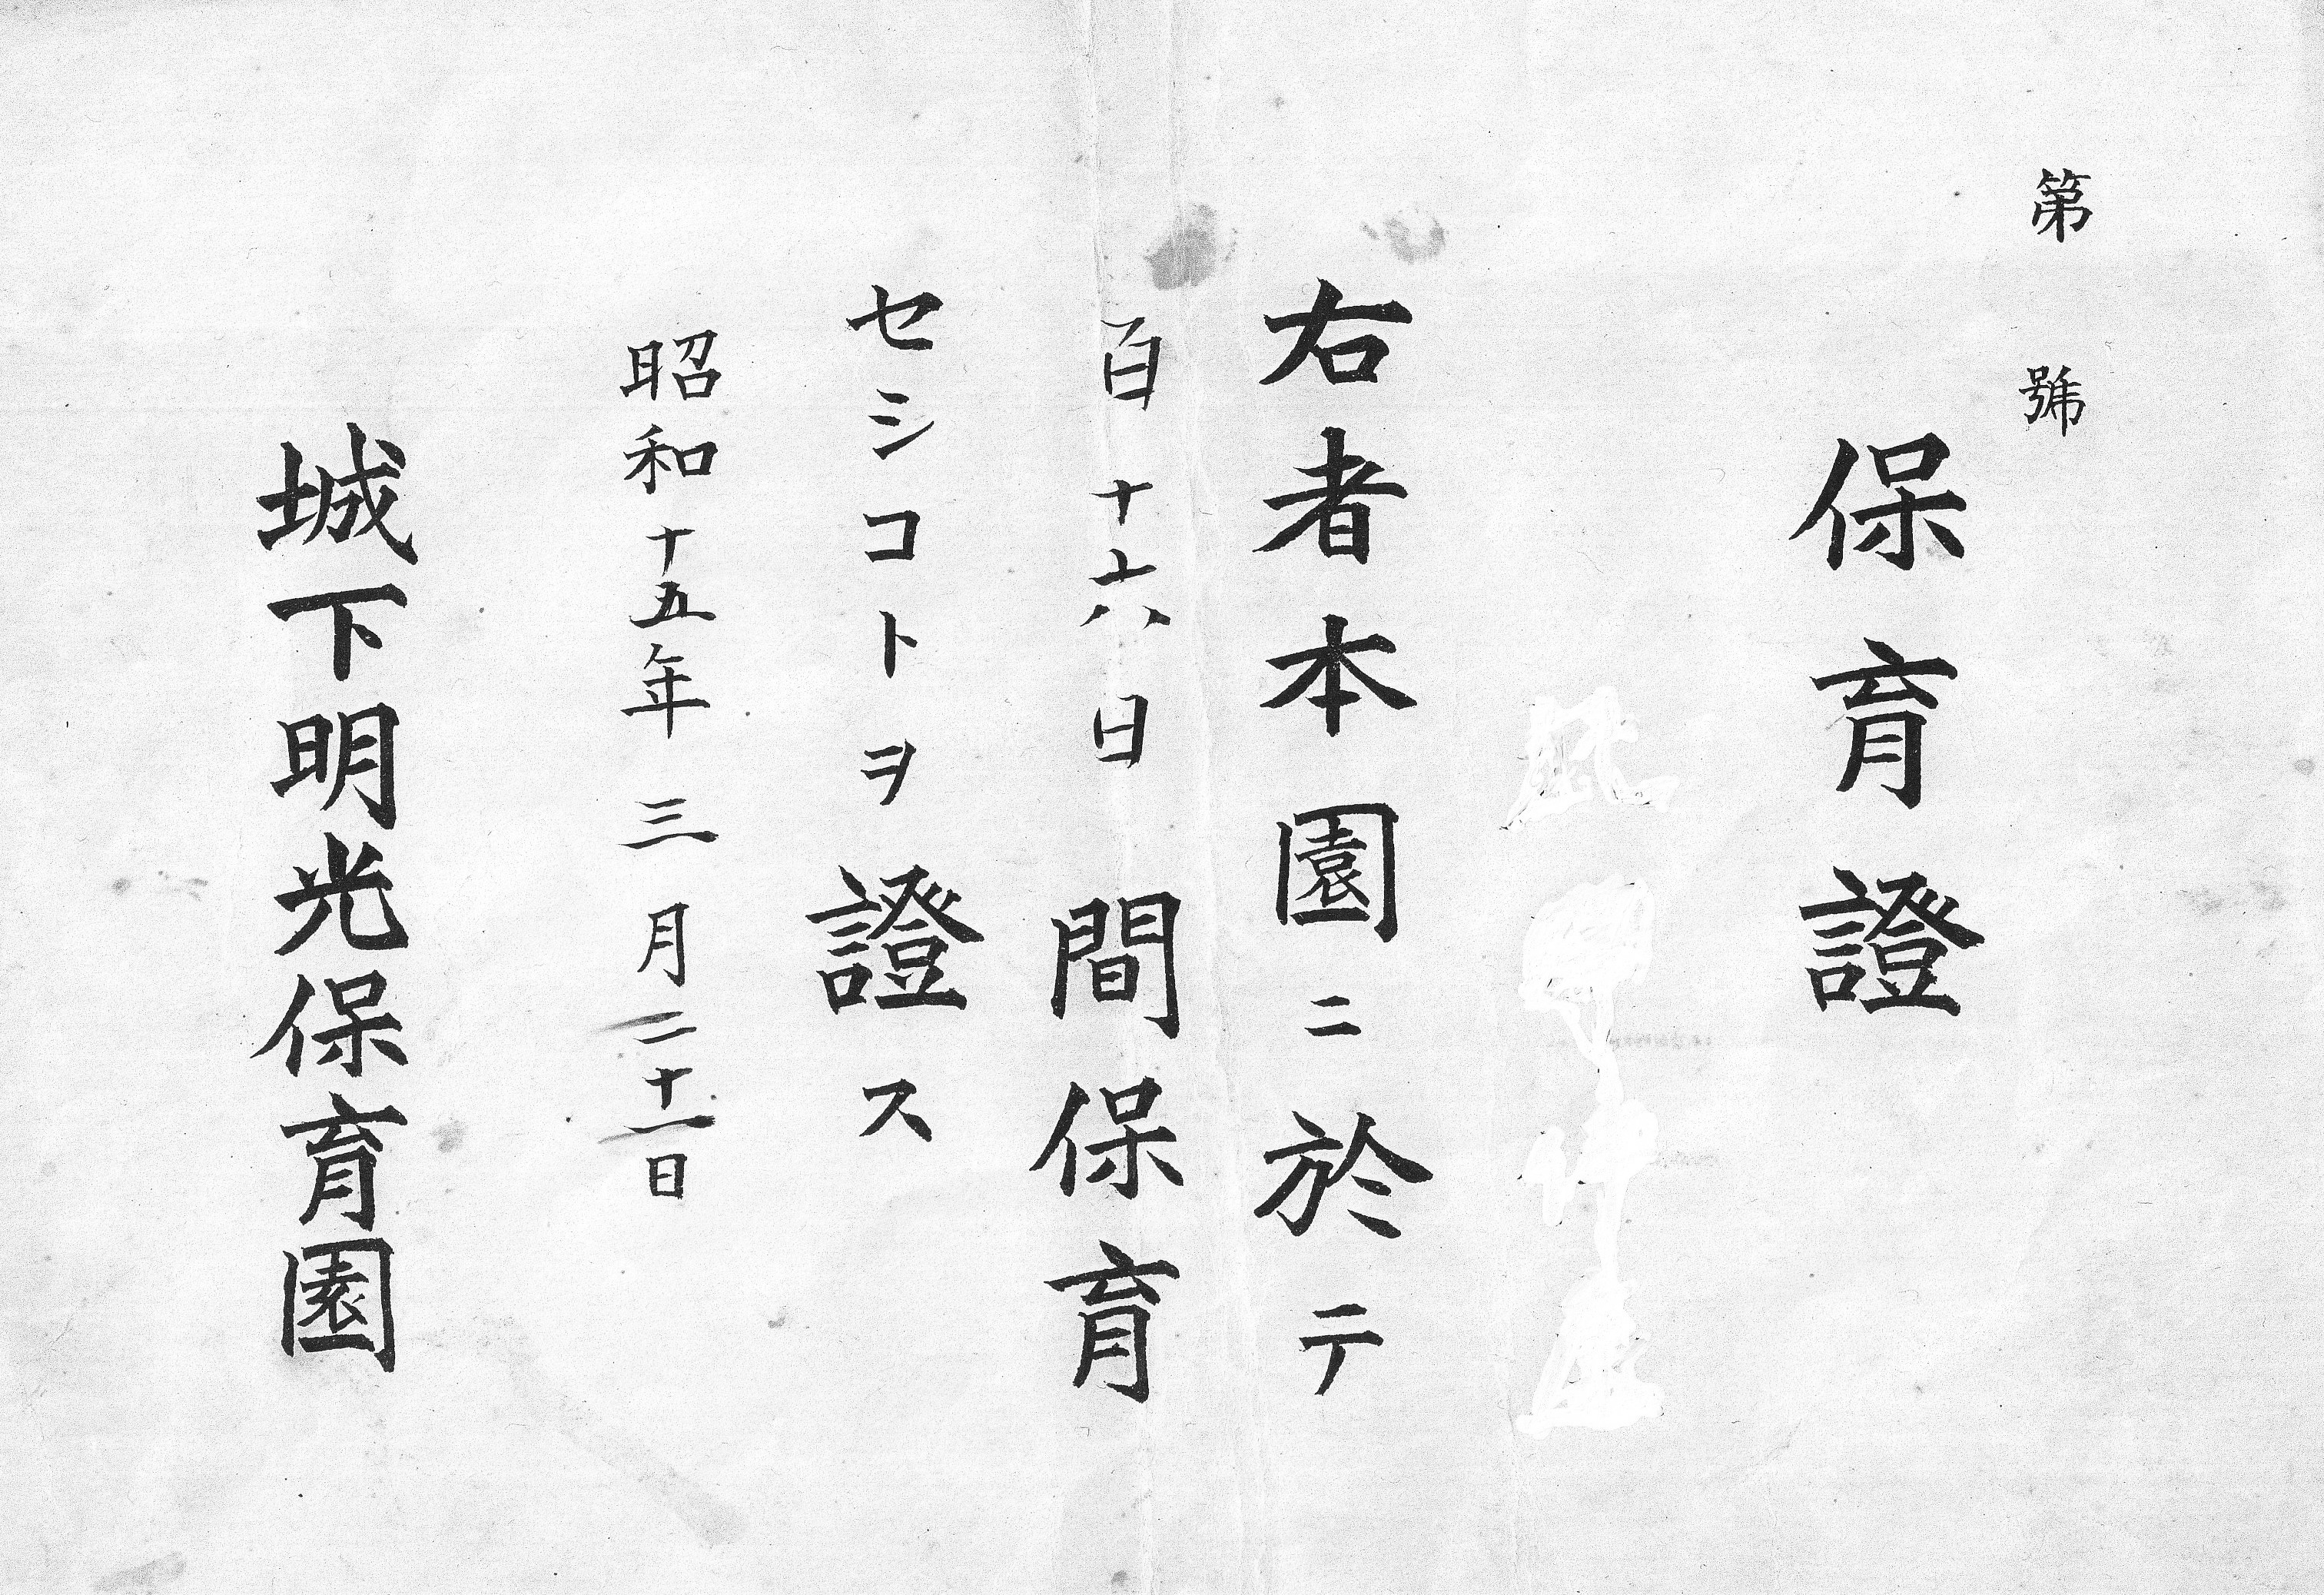 第　號
保育證
右者本園ニ於テ
百十六日間保育
セシコトヲ證ス
昭和十五年三月二十一日
城下明光保育園